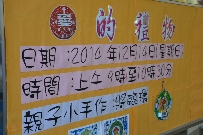 的禮物
日期：2010年12月19日星期日
時間：上午9時至10時30分
親子小手作